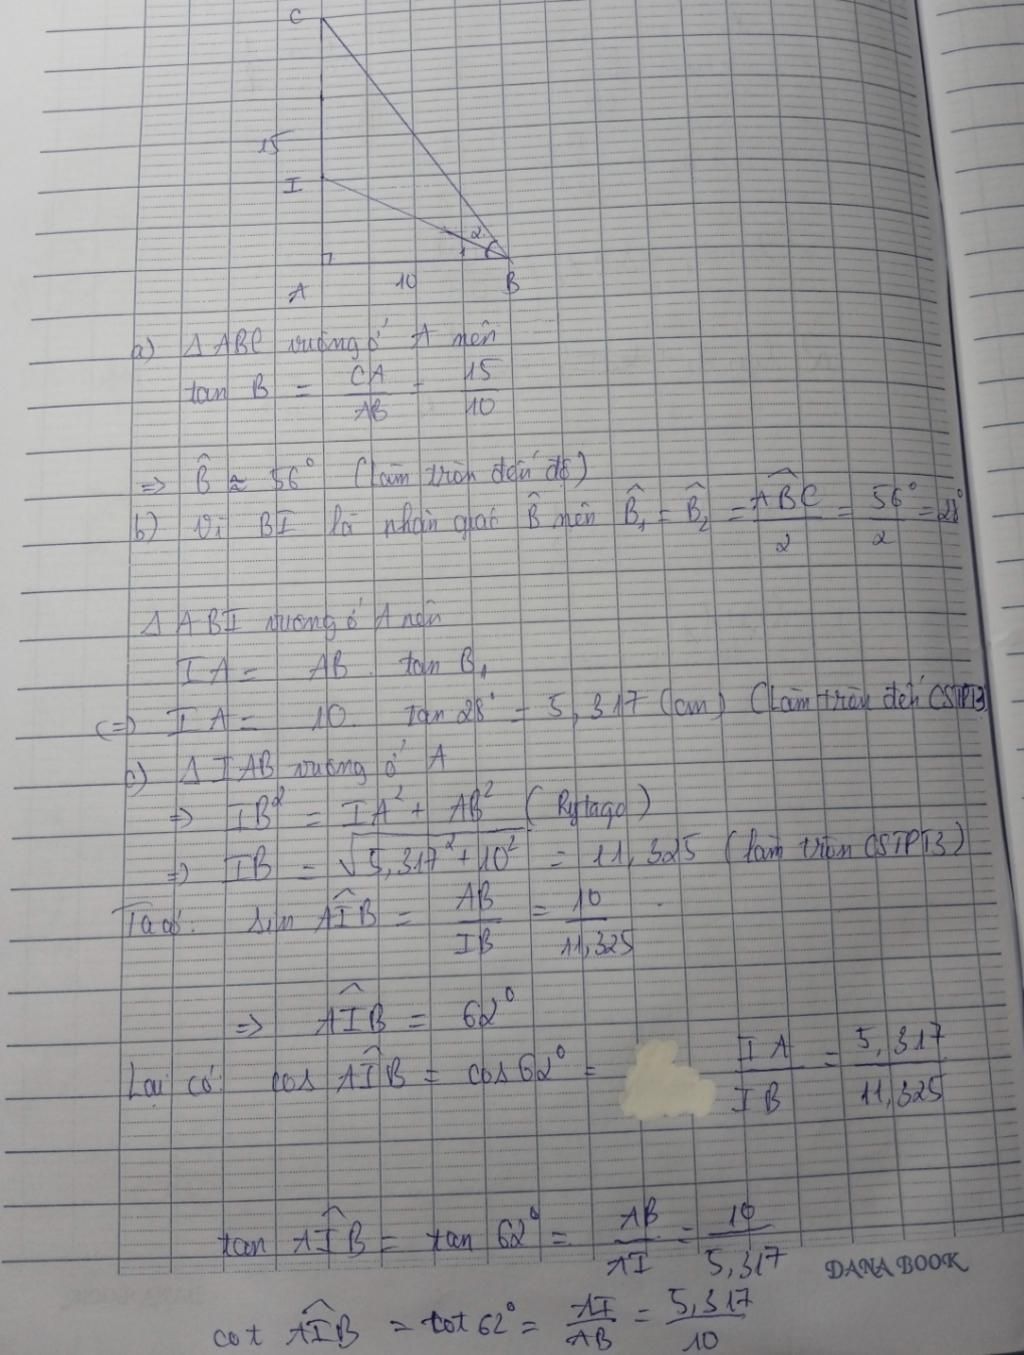 C
15
I
2
A 10 B
a) Δ ABC vuông ở A nên
tan B = CA/AB = 15/10
=> B̂ ≈ 56° (làm tròn đến độ)
b) Vì BI là phân giác B̂ nên B̂₁ = B̂₂ = ABC/2 = 56°/2 = 28°
Δ ABI vuông ở A nên
IA = AB. tan B₁
(=) IA = 10. tan 28° = 5,317 (cm) (Làm tròn đến CSTPT3)
c) Δ IAB vuông ở A
=> IB² = IA² + AB² (Pytago)
=> IB = √5,317² + 10² = 11,325 (làm tròn CSTPT3)
Ta có: sin AIB = AB/IB = 10/11,325
=> AIB = 62°
Lại có: cos AIB = cos 62° = IA/IB = 5,317/11,325
tan AIB = tan 62° = AB/AI = 10/5,317
DANA BOOK
cot AIB = cot 62° = AI/AB = 5,317/10